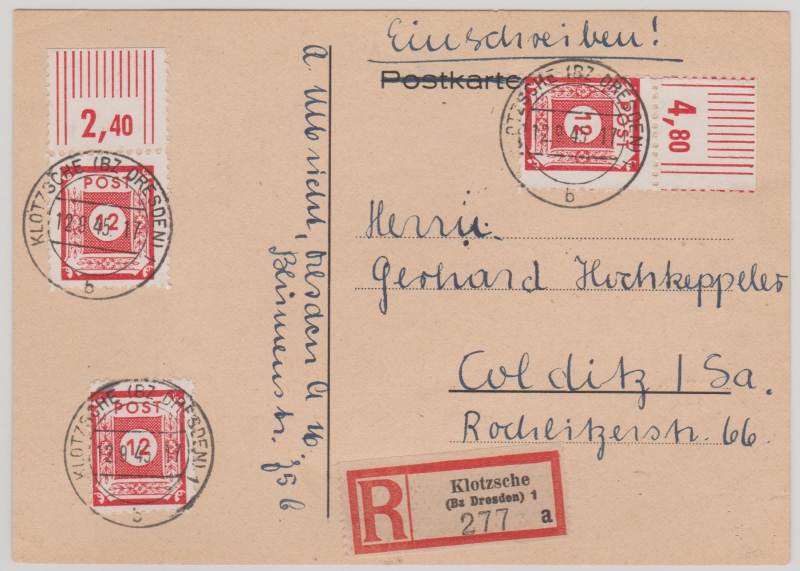 Einschreiben!
Postkarte
2,40
POST
12
KLOTZSCHE (BZ DRESDEN) 1
12.9.45.17
b
POST
12
4,80
KLOTZSCHE (BZ DRESDEN) 1
12.9.45.17
b
POST
12
KLOTZSCHE (BZ DRESDEN) 1
12.9.45.17
b
A. Ulbricht, Dresden A 16.
Blumenstr.
Herrn
Gerhard Hochkeppeler
Colditz / Sa.
Rochlitzerstr. 66
R
Klotzsche
(Bz Dresden) 1
277 a